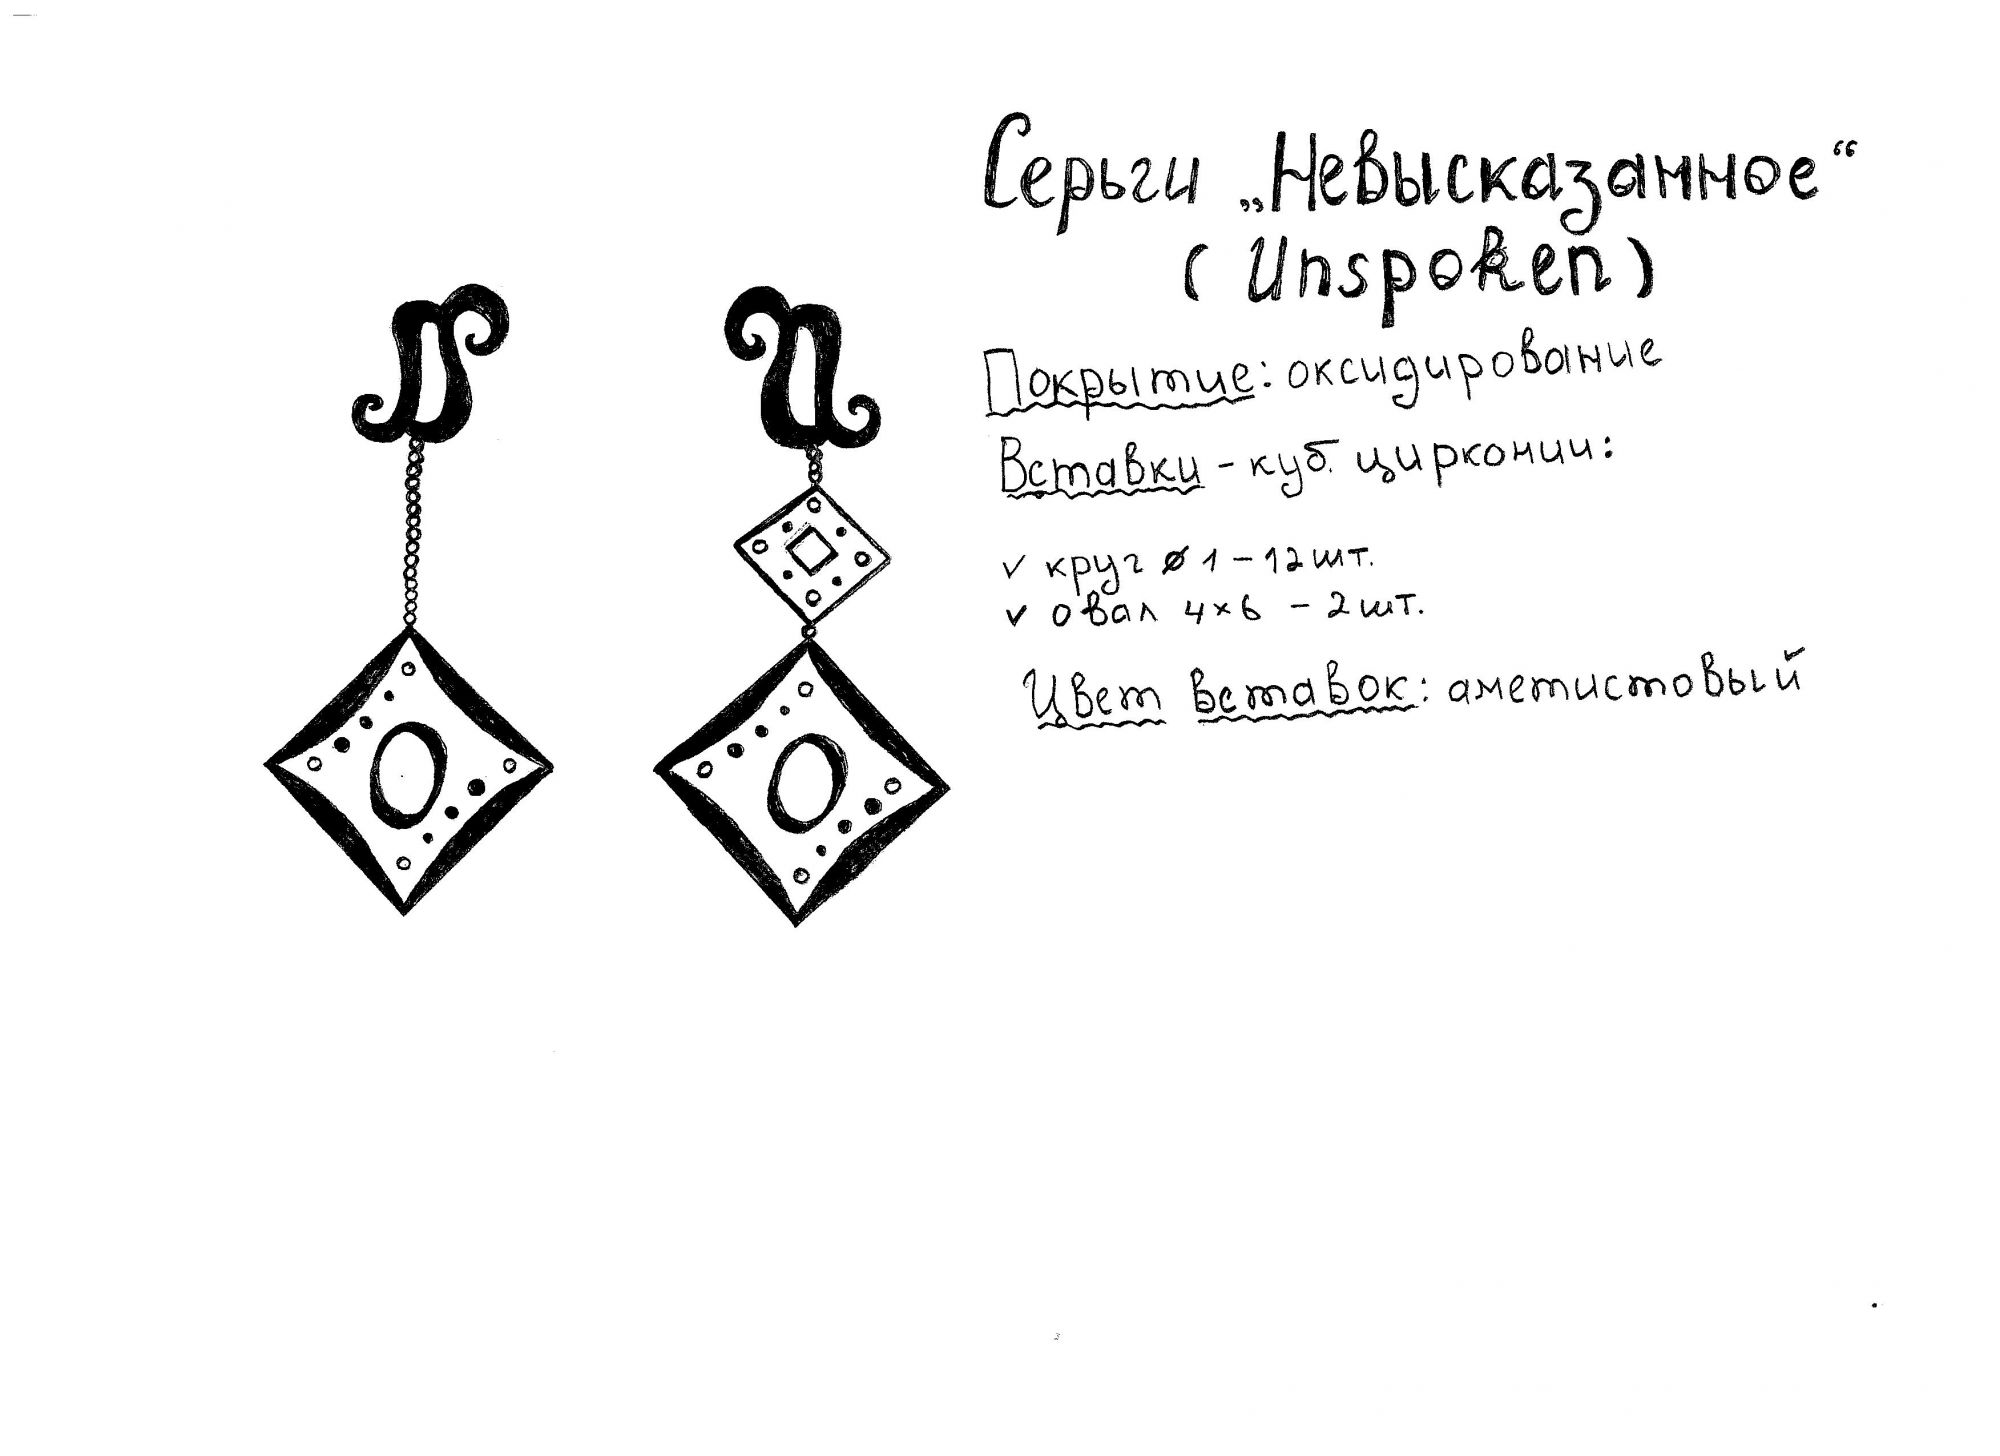 Серьги „Невысказанное“
(Unspoken)
Покрытие: оксидирование
Вставки - куб. цирконии:
✓ круг ⌀ 1 - 12 шт.
✓ овал 4×6 - 2 шт.
Цвет вставок: аметистовый